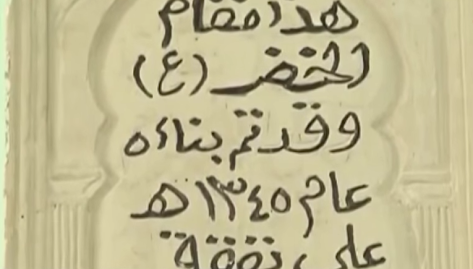 هذا مقام
الخضر (ع)
وقد تم بناءه
عام ١٣٤٥ هـ
على نفقة